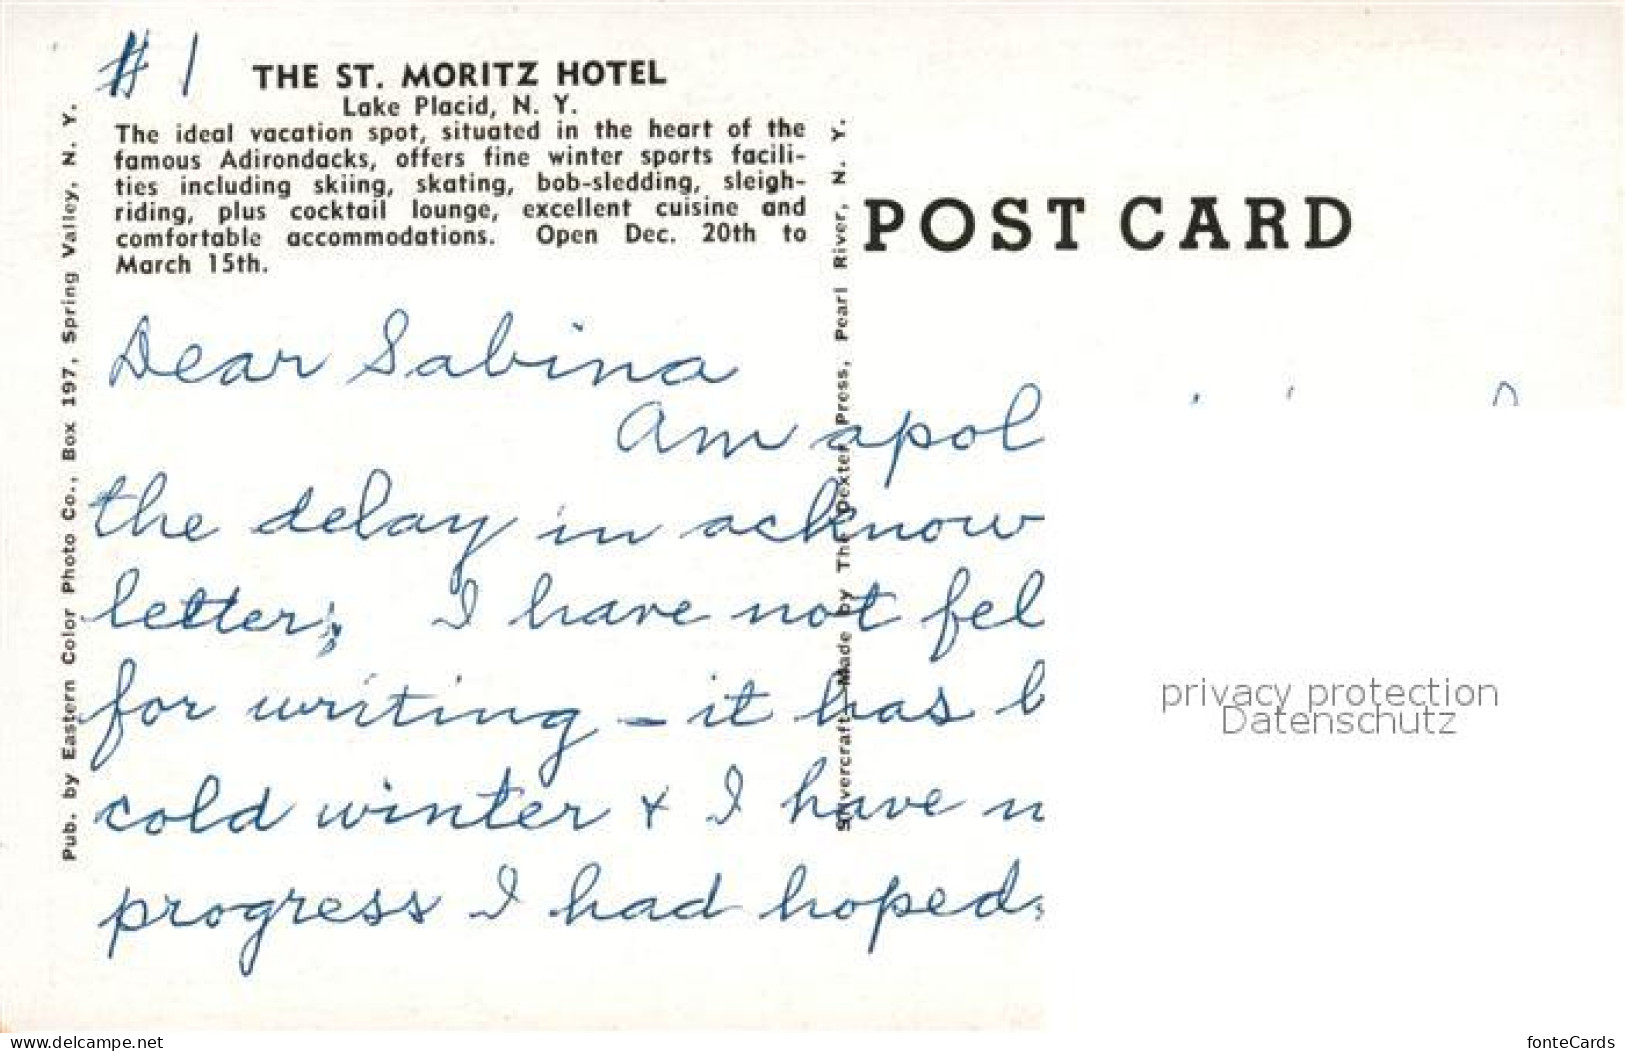 #1
THE ST. MORITZ HOTEL
Lake Placid, N. Y.
The ideal vacation spot, situated in the heart of the
famous Adirondacks, offers fine winter sports facili-
ties including skiing, skating, bob-sledding, sleigh-
riding, plus cocktail lounge, excellent cuisine and
comfortable accommodations. Open Dec. 20th to
March 15th.
Pub. by Eastern Color Photo Co., Box 197, Spring Valley, N. Y.
Silvercraft Made by The Dexter Press, Pearl River, N. Y.
POST CARD
Dear Sabina
Am apol
the delay in acknow
letter; I have not fel
for writing - it has b
cold winter + I have n
progress I had hoped,
privacy protection
Datenschutz
www.delcampe.net
fonteCards